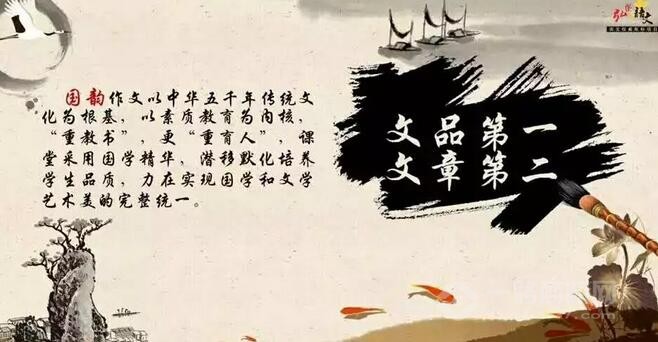 国韵作文以中华五千年传统文
化为根基，以素质教育为内核，
“重教书”，更“重育人”，课
堂采用国学精华，潜移默化培养
学生品质，力在实现国学和文学
艺术美的完整统一。
文品第一
文章第二
弘信语文